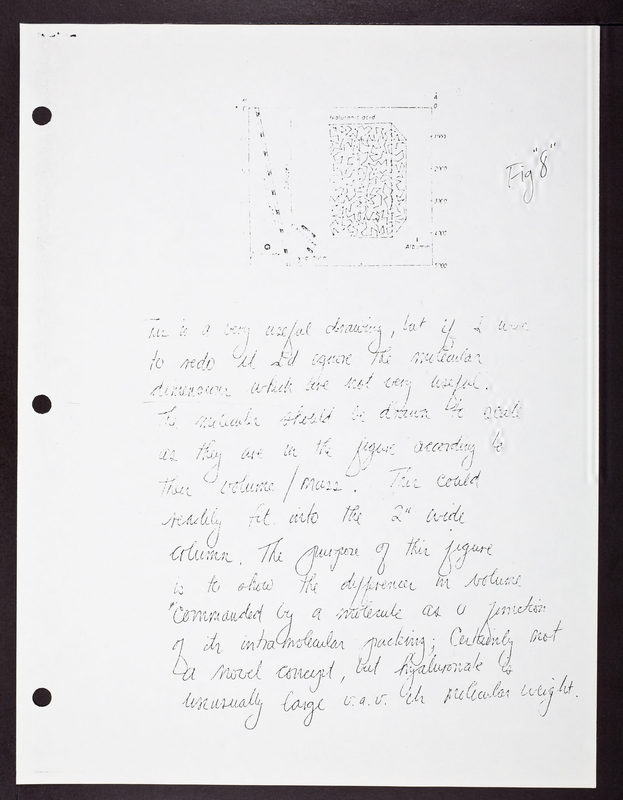 Å
0
hyaluronic acid
1000
2000
3000
4000
5000
Albumin
Fig "8"
This is a very useful drawing, but if I were
to redo it I'd ignore the molecular
dimensions which are not very useful.
The molecular should be drawn to scale
as they are in the figure according to
their volume/mass. This could
readily fit into the 2" wide
column. The purpose of this figure
is to show the difference in volume
"commanded by a molecule as a function
of its intramolecular packing; Certainly not
a novel concept, but hyaluronate is
unusually large v.a.v. its molecular weight.